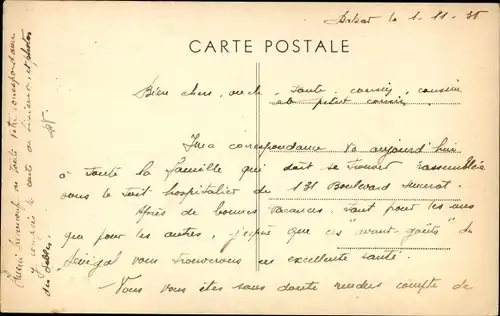 Dakar le 1-11-35
CARTE POSTALE
Bien chers oncle, Tante, cousin, cousine
et petit cousin,
correspondance va aujourd'hui
à toute la famille qui doit se trouver rassemblée
sous le toit hospitalier du 131 Boulevard Murat.
Après de bonnes vacances, tant pour les uns
que pour les autres, j'espère que ces "avant-goûts" du
Sénégal vous trouverons en excellente santé.
- Vous vous êtes sans doute rendus compte de
toute votre correspondance
y compris la carte de
des Sables.